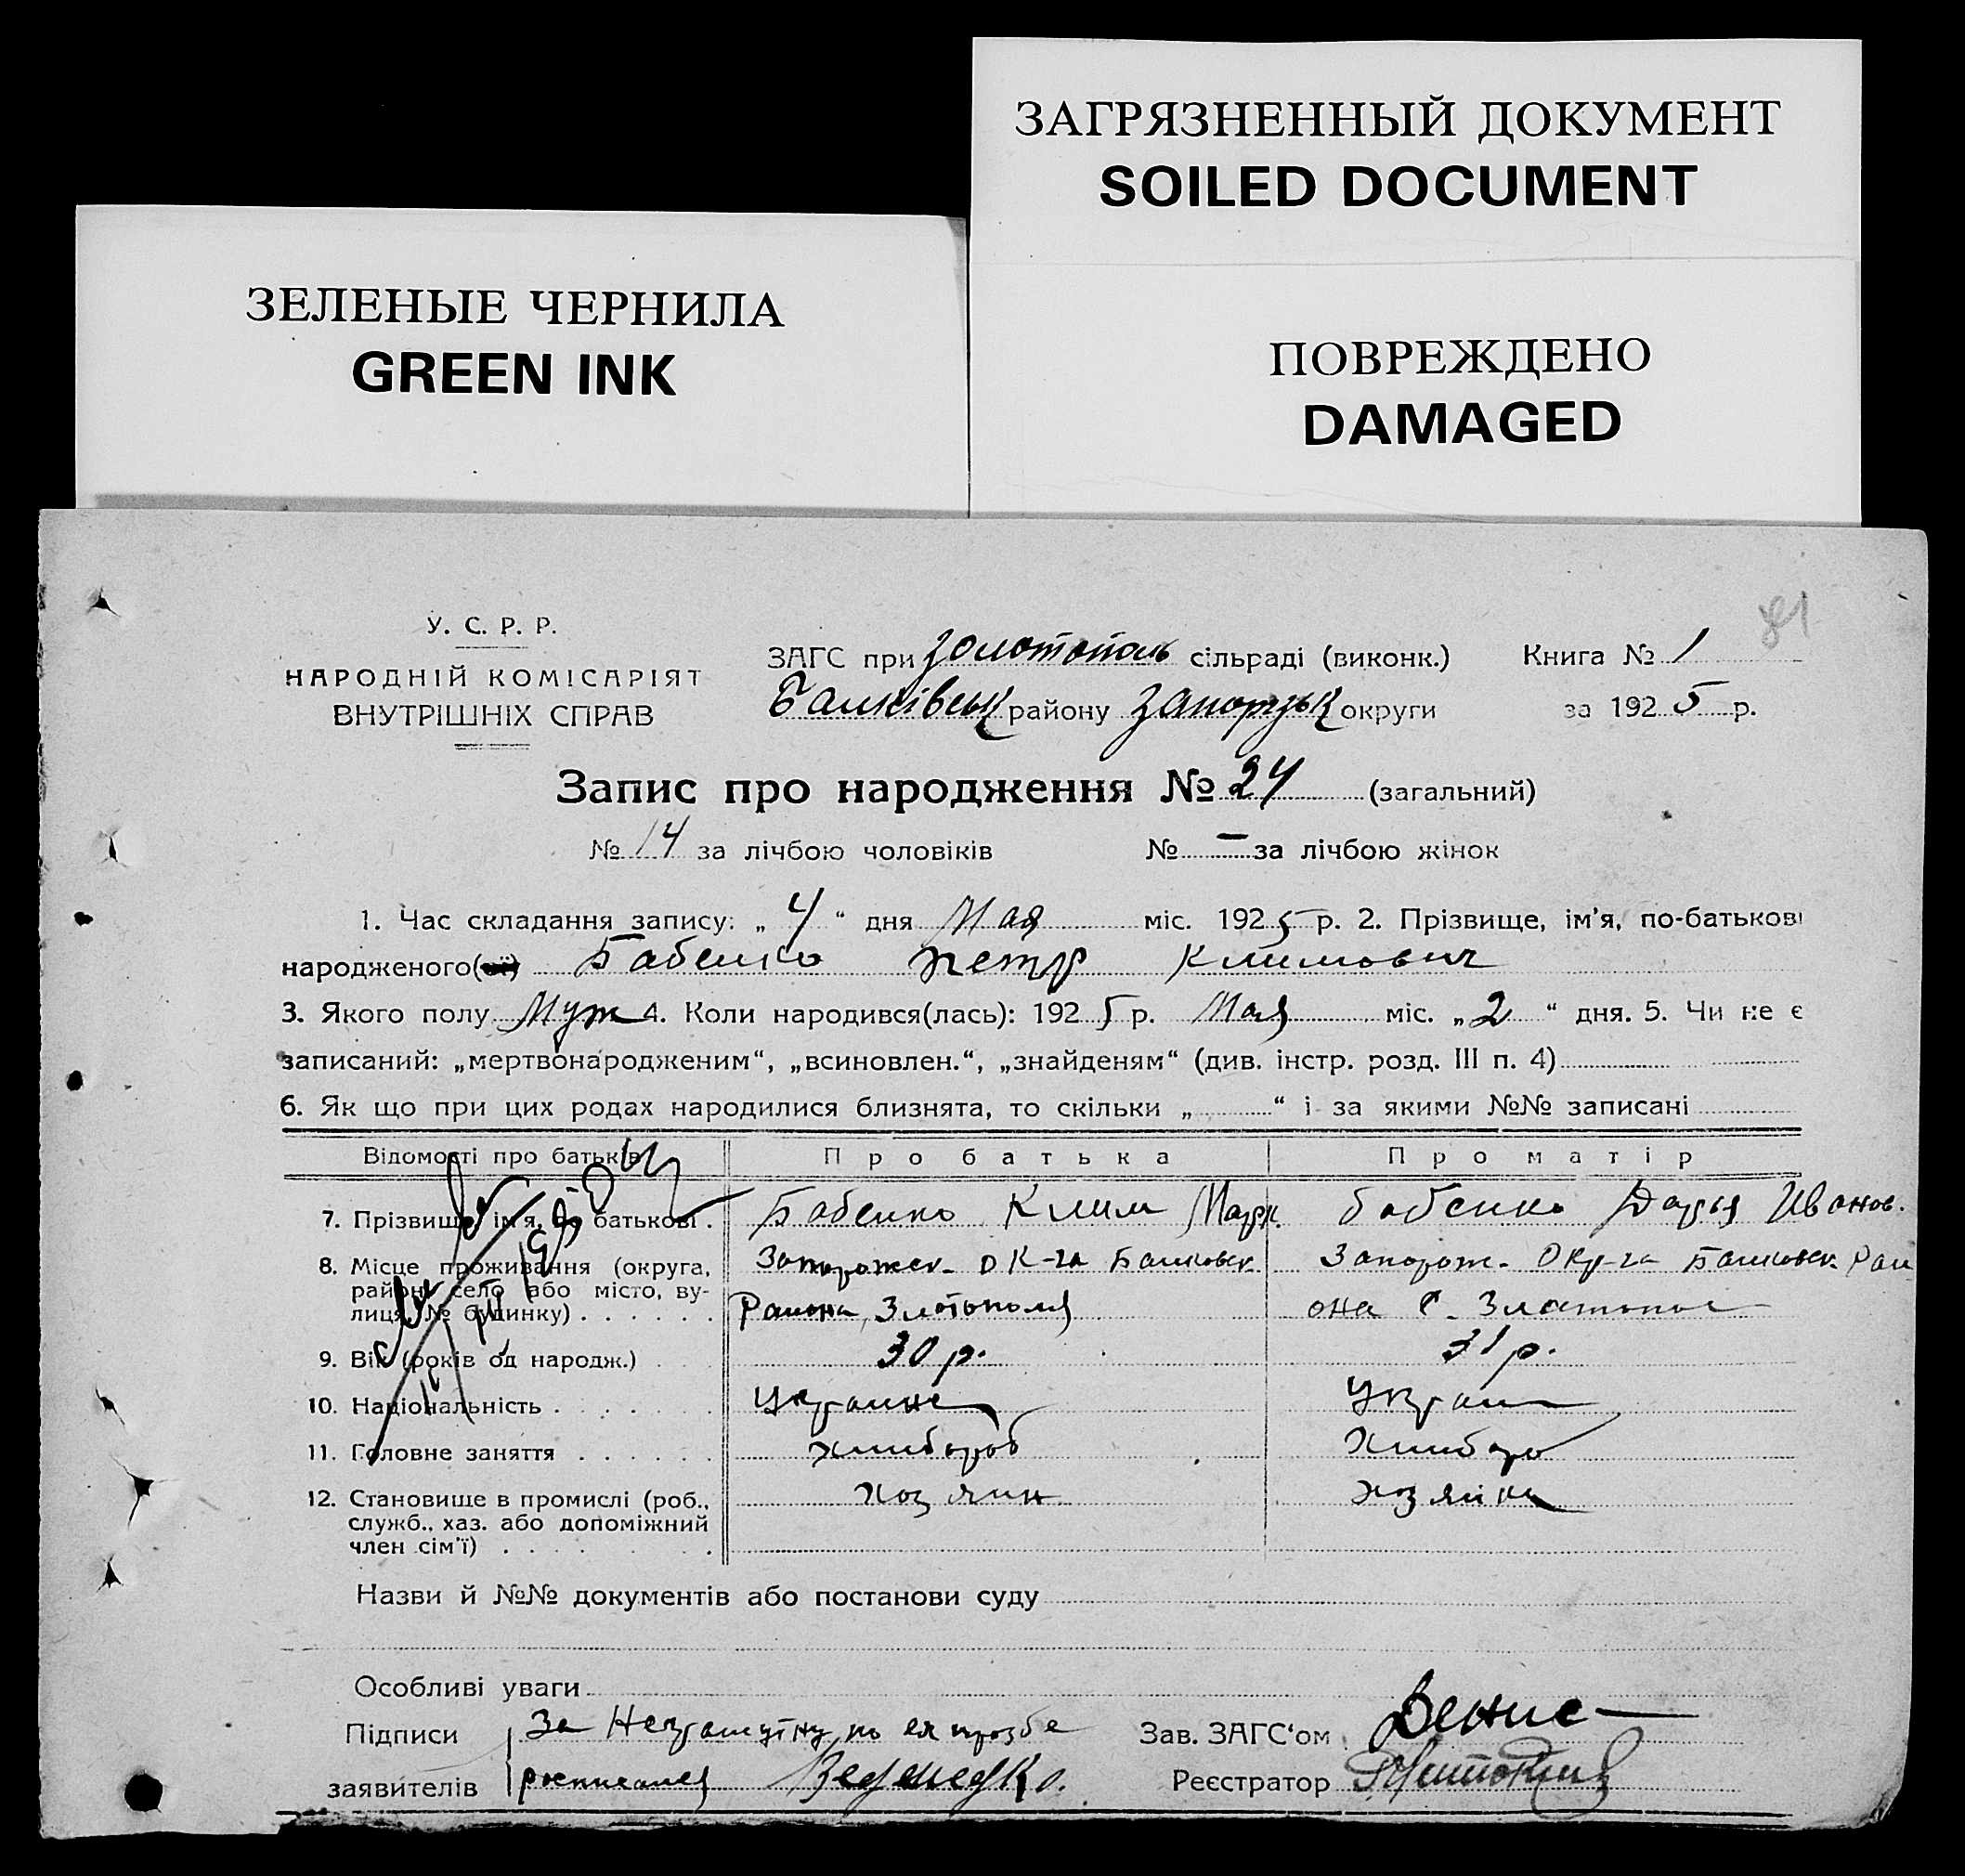 ЗАГРЯЗНЕННЫЙ ДОКУМЕНТ
SOILED DOCUMENT
ЗЕЛЕНЫЕ ЧЕРНИЛА
GREEN INK
ПОВРЕЖДЕНО
DAMAGED
81
У. С. Р. Р.
НАРОДНІЙ КОМІСАРІЯТ
ВНУТРІШНІХ СПРАВ
ЗАГС при Золотополь сільраді (виконк.) Книга № 1
Балківськ району Запорізьк округи за 1925 р.
Запис про народження № 24 (загальний)
№ 14 за лічбою чоловіків № – за лічбою жінок
1. Час складання запису: „ 4 “ дня Мая міс. 1925 р. 2. Прізвище, ім'я, по-батькові
народженого Бабенко Петр Климович
3. Якого полу Муж 4. Коли народився(лась): 1925 р. Мая міс. „ 2 “ дня. 5. Чи не є
записаний: „мертвонародженим“, „всиновлен.“, „знайденям“ (див. інстр. розд. III п. 4)
6. Як що при цих родах народилися близнята, то скільки „ “ і за якими №№ записані
Відомості про батьків Про батька Про матір
7. Прізвище, ім'я, по батькові . Бабенко Клим Марк. Бабенко Дарья Иванов.
8. Місце проживання (округа, Запорожск. Ок-га Балковск Запорож. Окр-га Балковск. Рай
район, село або місто, ву-
лиця, № будинку) . . . . . . Района, Златополя она с. Златополь
9. Вік (років од народж.) . . 30 р. 31 р.
10. Національність . . . . . Украине Украин
11. Головне заняття . . . . . . хлибороб Хлибор
12. Становище в промислі (роб., хозяин хозяйка
служб., хаз. або допоміжний
член сім'ї) . . . . .
Назви й №№ документів або постанови суду
Особливі уваги
Підписи За Неграмутну по ея прозбе Зав. ЗАГС'ом Денис
заявителів росписался Реєстратор